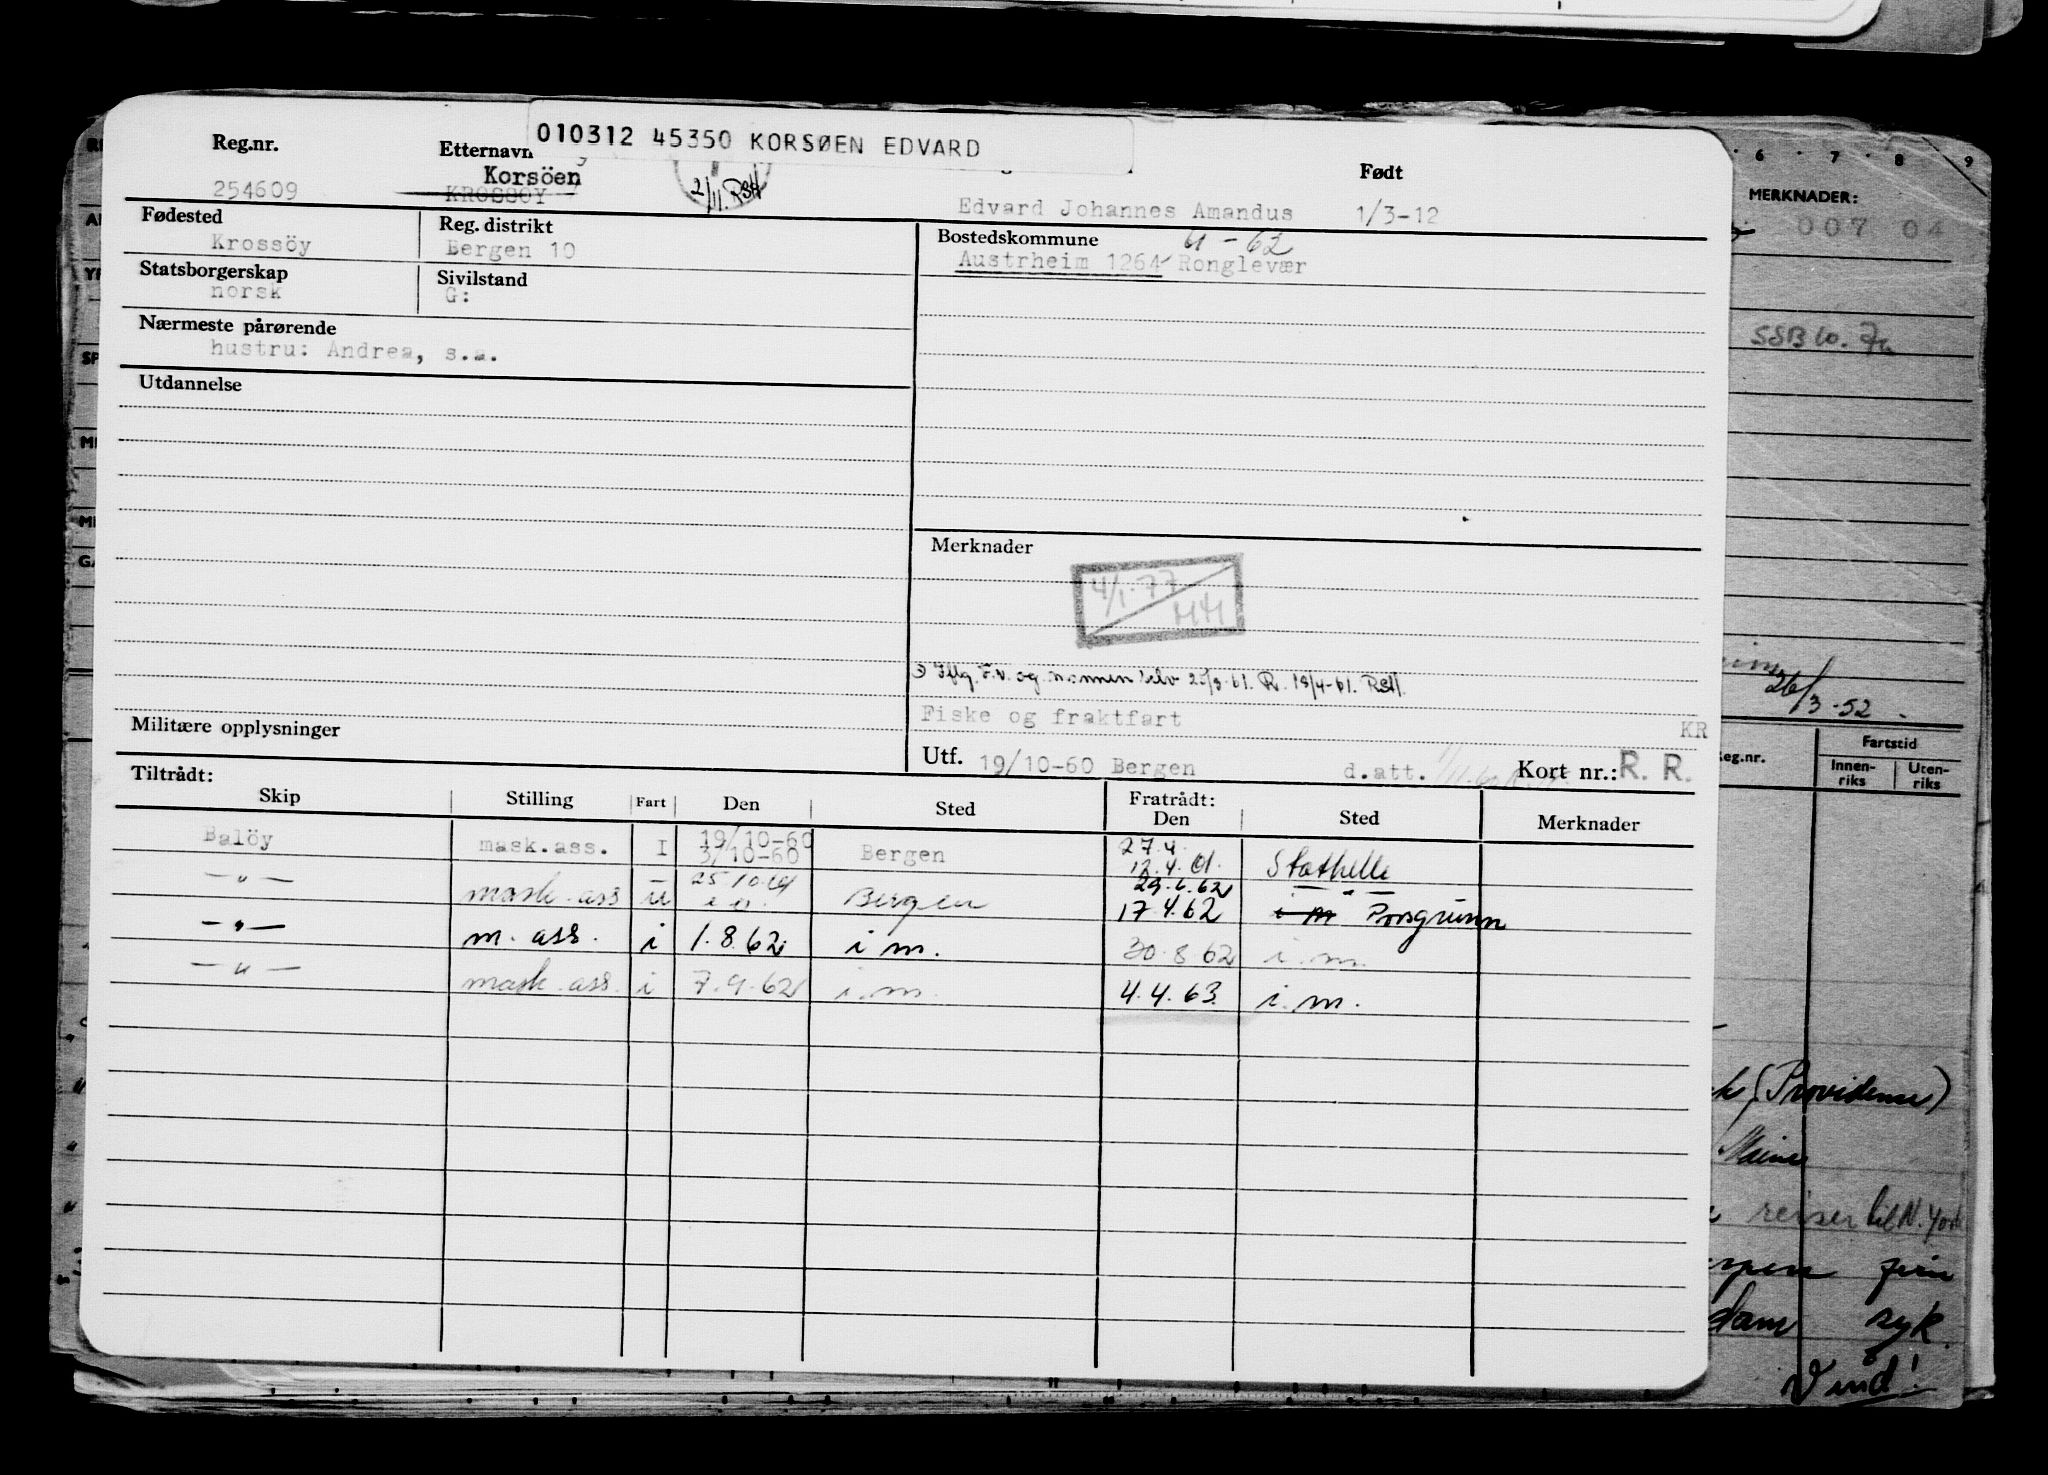 010312 45350 KORSØEN EDVARD
Reg.nr. Etternavn Født
254609 Korsöen KROSSÖY 2/11. RSH Edvard Johannes Amandus 1/3-12
Fødested Reg. distrikt Bostedskommune
Krossöy Bergen 10 U - 62
Austrheim 1264 Ronglevær
Statsborgerskap Sivilstand
norsk G:
Nærmeste pårørende
hustru: Andrea, s.a.
Utdannelse
Merknader
4/1-77
MH
Iflg. F.v. og mannen selv 25/3-61. R. 18/4-61. RSH.
Fiske og fraktfart KR
Militære opplysninger
Utf. 19/10-60 Bergen d.att. Kort nr.: R. R.
Tiltrådt: Fratrådt:
Skip Stilling Fart Den Sted Den Sted Merknader
Balöy mask.ass. I 19/10-60 3/10-60 Bergen 27.4. 12.4.61. Stathelle
— " — mask. ass u 25.10.61 Bergen 29.6.62 17.4.62 — " — i m Porsgrunn
— " — m. ass. i 1.8.62 i m. 30.8.62 i.m.
— " — mask. ass. i 7.9.62 i.m. 4.4.63. i.m.
6 7 8 9
MERKNADER:
007 04
SSB
26/3-52
Reg.nr. Fartstid
Innen-riks Uten-riks
(Providence)
Maine
reiser til N. York
syk.